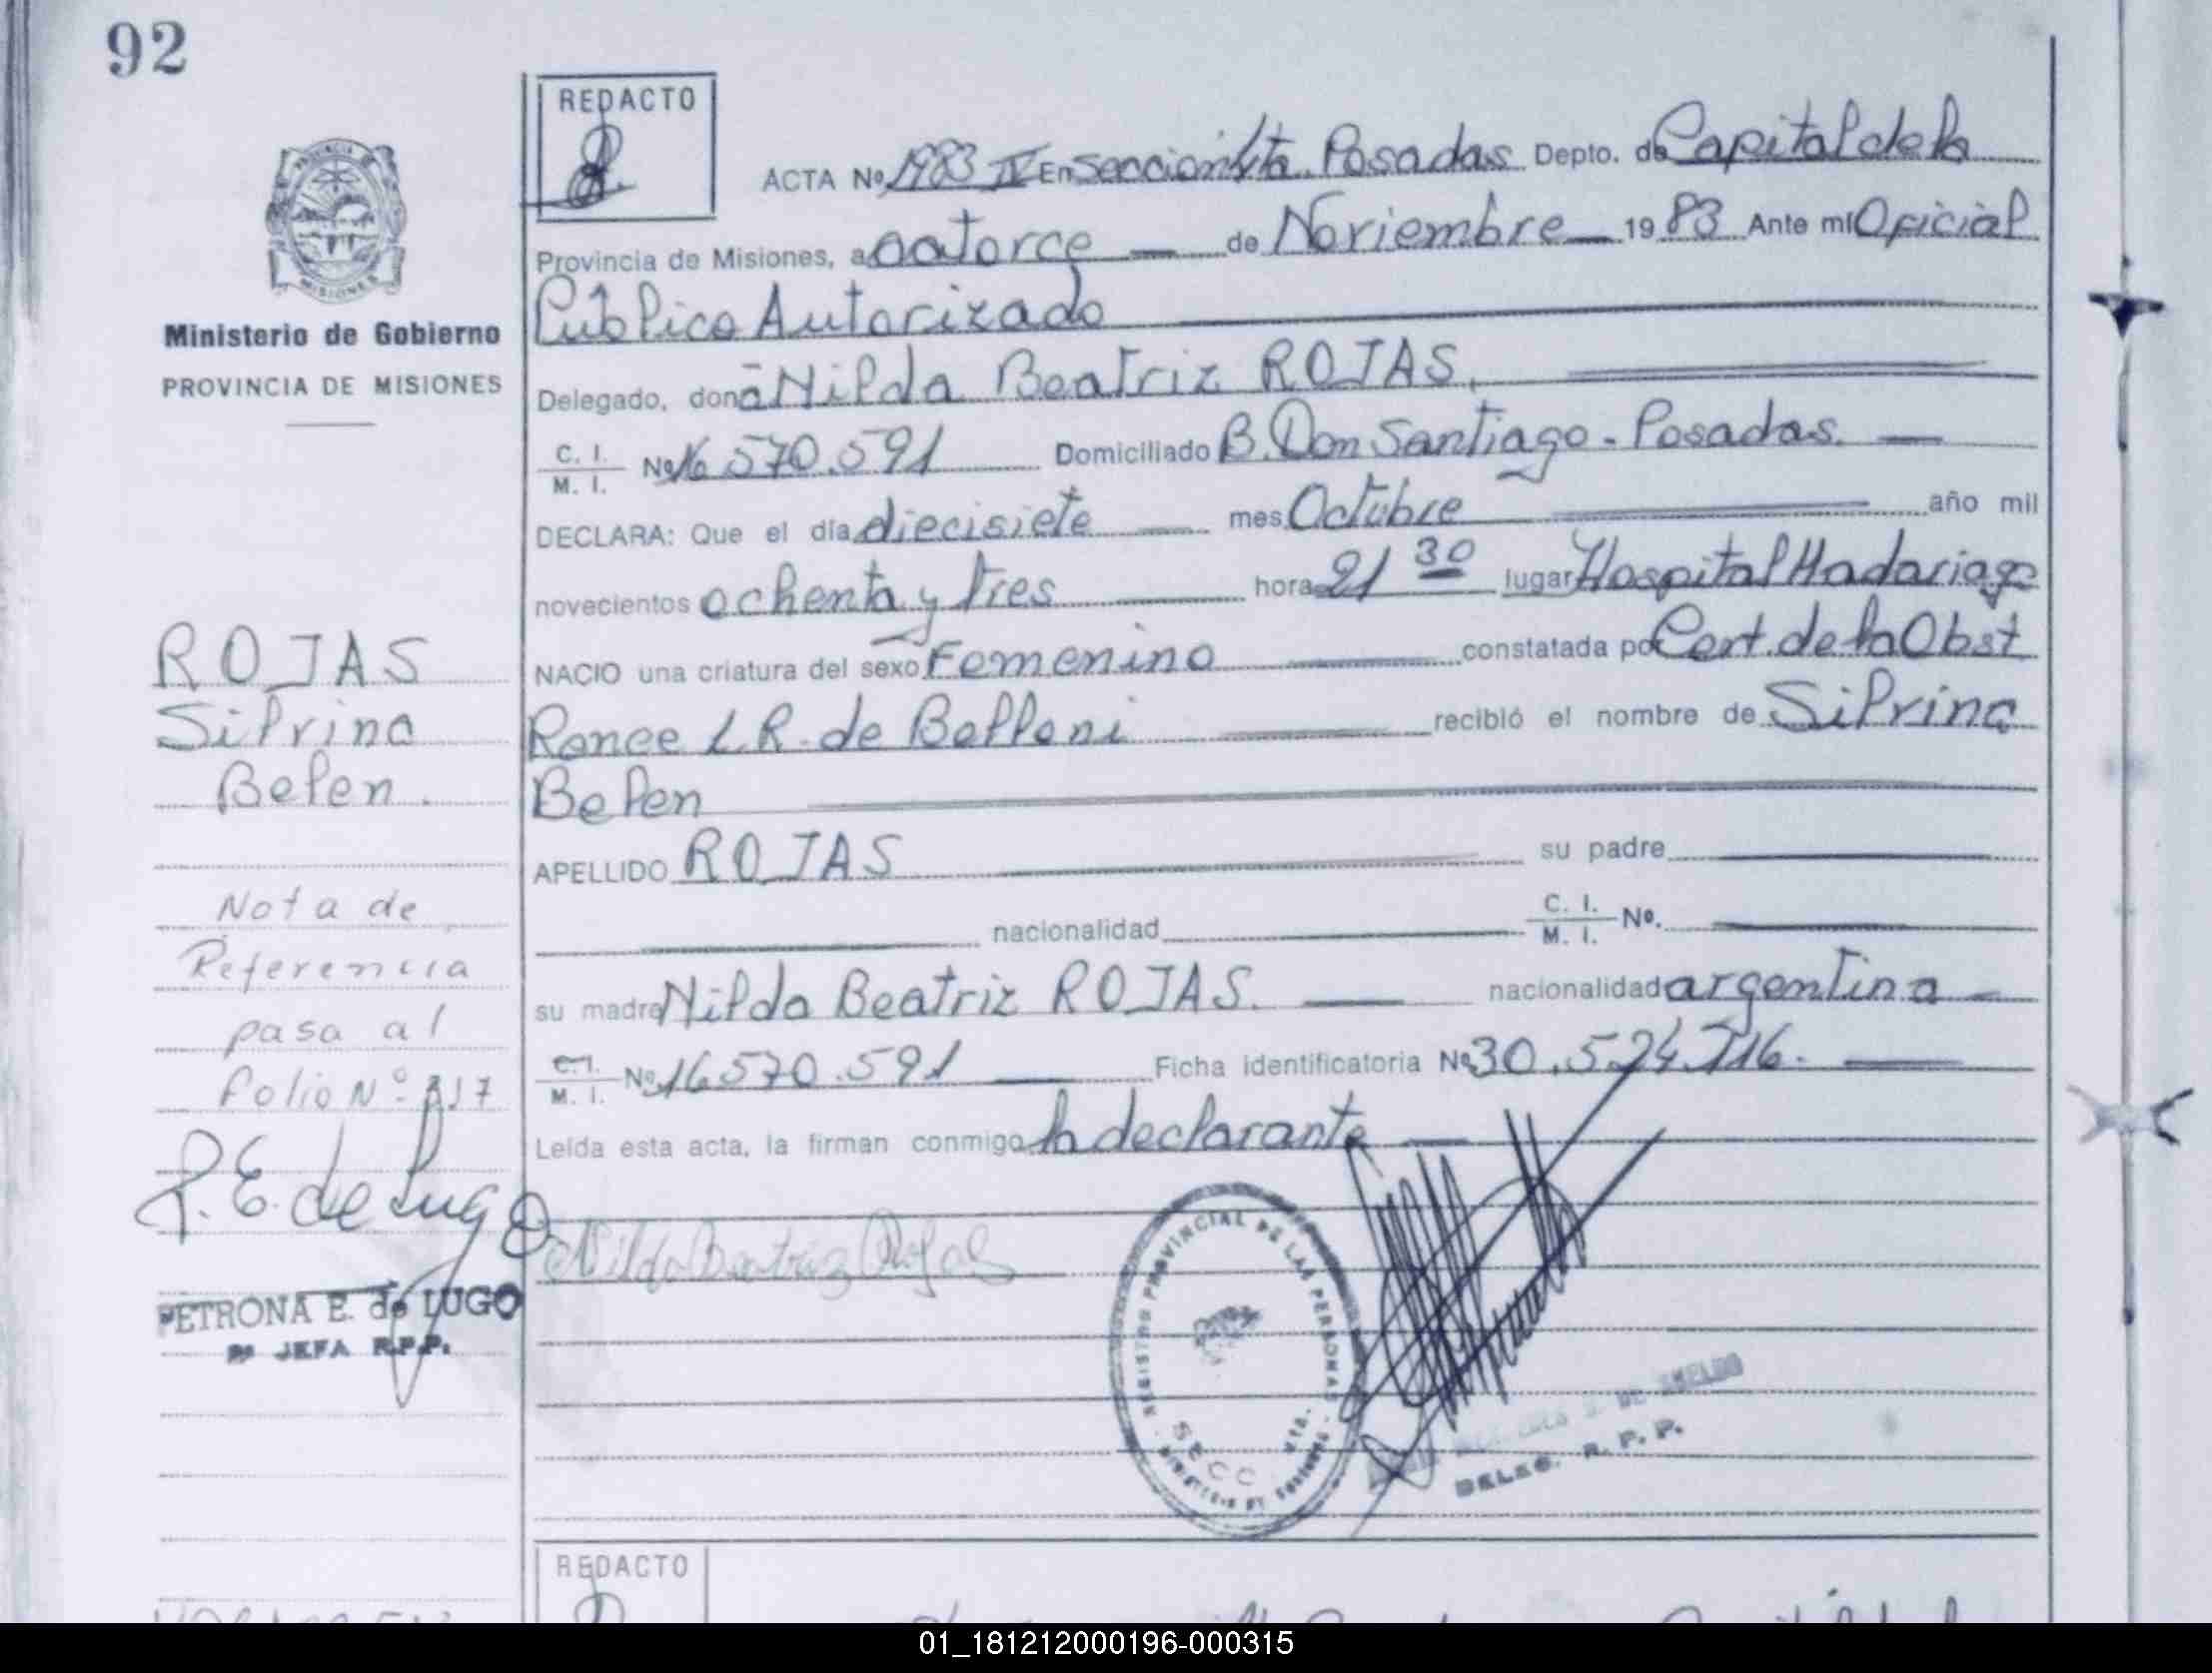 92
REDACTO
ACTA Nº 1983 IV En Sección 4ta. Posadas Depto. de Capital de la
Provincia de Misiones, a catorce — de Noviembre — 1983 Ante mí Oficial
Público Autorizado
Delegado, doña Nilda Beatriz ROJAS.
C. I.
M. I. Nº 16 570.591 Domiciliado B. Don Santiago - Posadas. —
DECLARA: Que el día diecisiete — mes Octubre año mil
novecientos ochenta y tres hora 21 30 lugar Hospital Madariaga
NACIO una criatura del sexo Femenino constatada por Cert. de la Obst
Renee L.R. de Belloni recibió el nombre de Silvina
Belen
APELLIDO ROJAS su padre
nacionalidad C. I.
M. I. Nº.
su madre Nilda Beatriz ROJAS. — nacionalidad argentina —
C. I.
M. I. Nº 16 570.591 — Ficha identificatoria Nº 30.524.716. —
Leída esta acta, la firman conmigo la declarante —
Nilda Beatriz Rojas
REGISTRO PROVINCIAL DE LAS PERSONAS
SECC 4ta.
MINISTERIO DE GOBIERNO
DELEG. R. P. P.
Ministerio de Gobierno
PROVINCIA DE MISIONES
ROJAS
Silvina
Belen.
Nota de
Referencia
pasa al
folio Nº 317
P. E. de Lugo
PETRONA E. de LUGO
JEFA R.P.P.
REDACTO
01_181212000196-000315